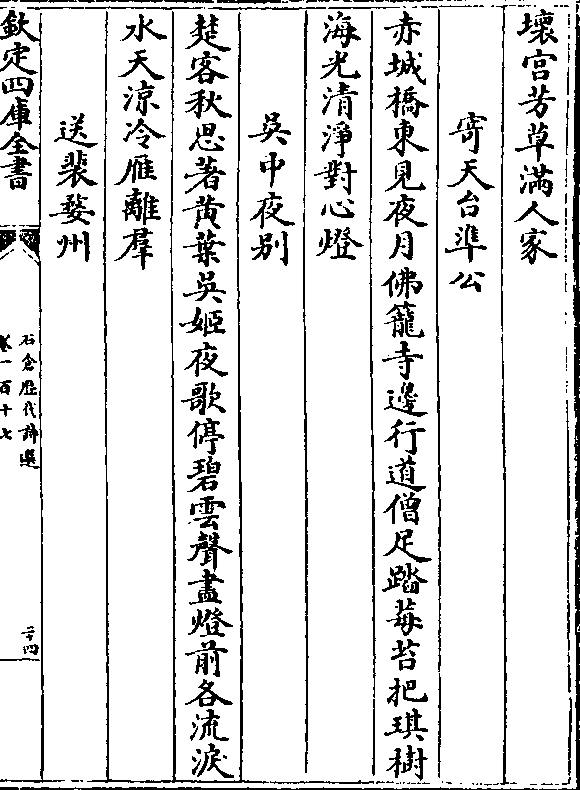 壞宫芳草滿人家
寄天台準公
赤城橋東見夜月佛籠寺邊行道僧足踏莓苔把琪樹
海光清淨對心燈
吳中夜别
楚客秋思著黄葉吳姬夜歌停碧雲聲盡燈前各流淚
水天涼冷雁離羣
送裴婺州
欽定四庫全書
石倉歴代詩選
卷一百十七
二十四